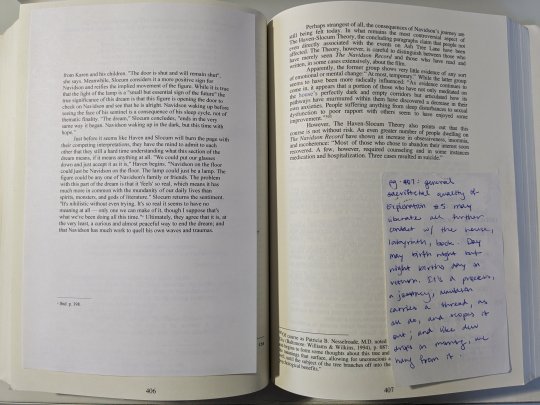 from Karen and his children. "The door is shut and will remain that",
she says. Meanwhile, Slocum considers it a more positive sign for
Navidson and reifies the implied movement of the figure. While it is true
that the light of the lamp is a "small but essential sign of the future" the
true significance of this dream is that this figure is opening the door to
check on Navidson and see that he is alright. Navidson waking up before
seeing the face of his sentinel is a consequence of his sleep cycle, not of
thematic finality. "The dream," Slocum concludes, "ends in the very
same way it began. Navidson waking up in the dark, but this time with
hope."
Just before it seems like Haven and Slocum will burn the page with
their competing interpretations, they have the mind to admit to each
other that they still a hard time understanding what this section of the
dream means, if it means anything at all. "We could put our glasses
down and just accept it as it is," Haven begins. "Navidson on the floor
could just be Navidson on the floor. The lamp could just be a lamp. The
figure could be any one of Navidson's family or friends. The problem
with this part of the dream is that it 'feels' so real, which means it has
much more in common with the mundanity of our daily lives than
spirits, monsters, and gods of literature." Slocum returns the sentiment.
"It's nihilistic without even trying. It's so real it seems to have no
meaning at all — only one we can make of it, though I suppose that's
what we've been doing all this time." Ultimately, they agree that it is, at
the very least, a curious and almost peaceful way to end the dream; and
that Navidson has much work to quell his own waves and traumas.
Ibid. p. 398.
406
Perhaps strangest of all, the consequences of Navidson's journey are
still being felt today. In what remains the most controversial aspect of
The Haven-Slocum Theory, the concluding paragraphs claim that people not
even directly associated with the events on Ash Tree Lane have been
affected. The Theory, however, is careful to distinguish between those who
have merely seen The Navidson Record and those who have read and
written, in some cases extensively, about the film.
Apparently, the former group shows very little evidence of any sort
of emotional or mental change: "At most, temporary." While the latter group
seems to have been more radically influenced: "As evidence continues to
come in, it appears that a portion of those who have not only meditated on
the house's perfectly dark and empty corridors but articulated how its
pathways have murmured within them have discovered a decrease in their
own anxieties. People suffering anything from sleep disturbances to sexual
dysfunction to poor rapport with others seem to have enjoyed some
improvement."
However, The Haven-Slocum Theory also points out that this
course is not without risk. An even greater number of people dwelling on
The Navidson Record have shown an increase in obsessiveness, insomnia,
and incoherence: "Most of those who chose to abandon their interest soon
recovered. A few, however, required counseling and in some instances
medication and hospitalization. Three cases resulted in suicide."
pg. 407: general
sacrificial quality of
exploration #5 may
liberate all further
contact w/ the house,
labyrinth, book. Day
may birth night but
night births day in
return. It's a process,
a journey, navidson
carries a thread, as
we do, and ropes it
out; and like dew
drops in morning, we
hang from it.
Of course as Patricia B. Nesselroade, M.D. noted
(Baltimore: Williams & Wilkins, 1994), p. 687:
begins to form some thoughts about this tree and
meanings that surface, allowing for unconscious
until the subject of the tree branches off into the
psychological benefits."
407